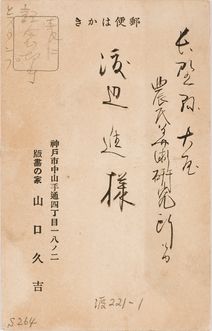 郵便はかき
長野県大屋
農民美術研究所内
渡辺進様
神戸市中山手通四丁目一八ノ二
版画の家
山口久吉
渡221-1
S264